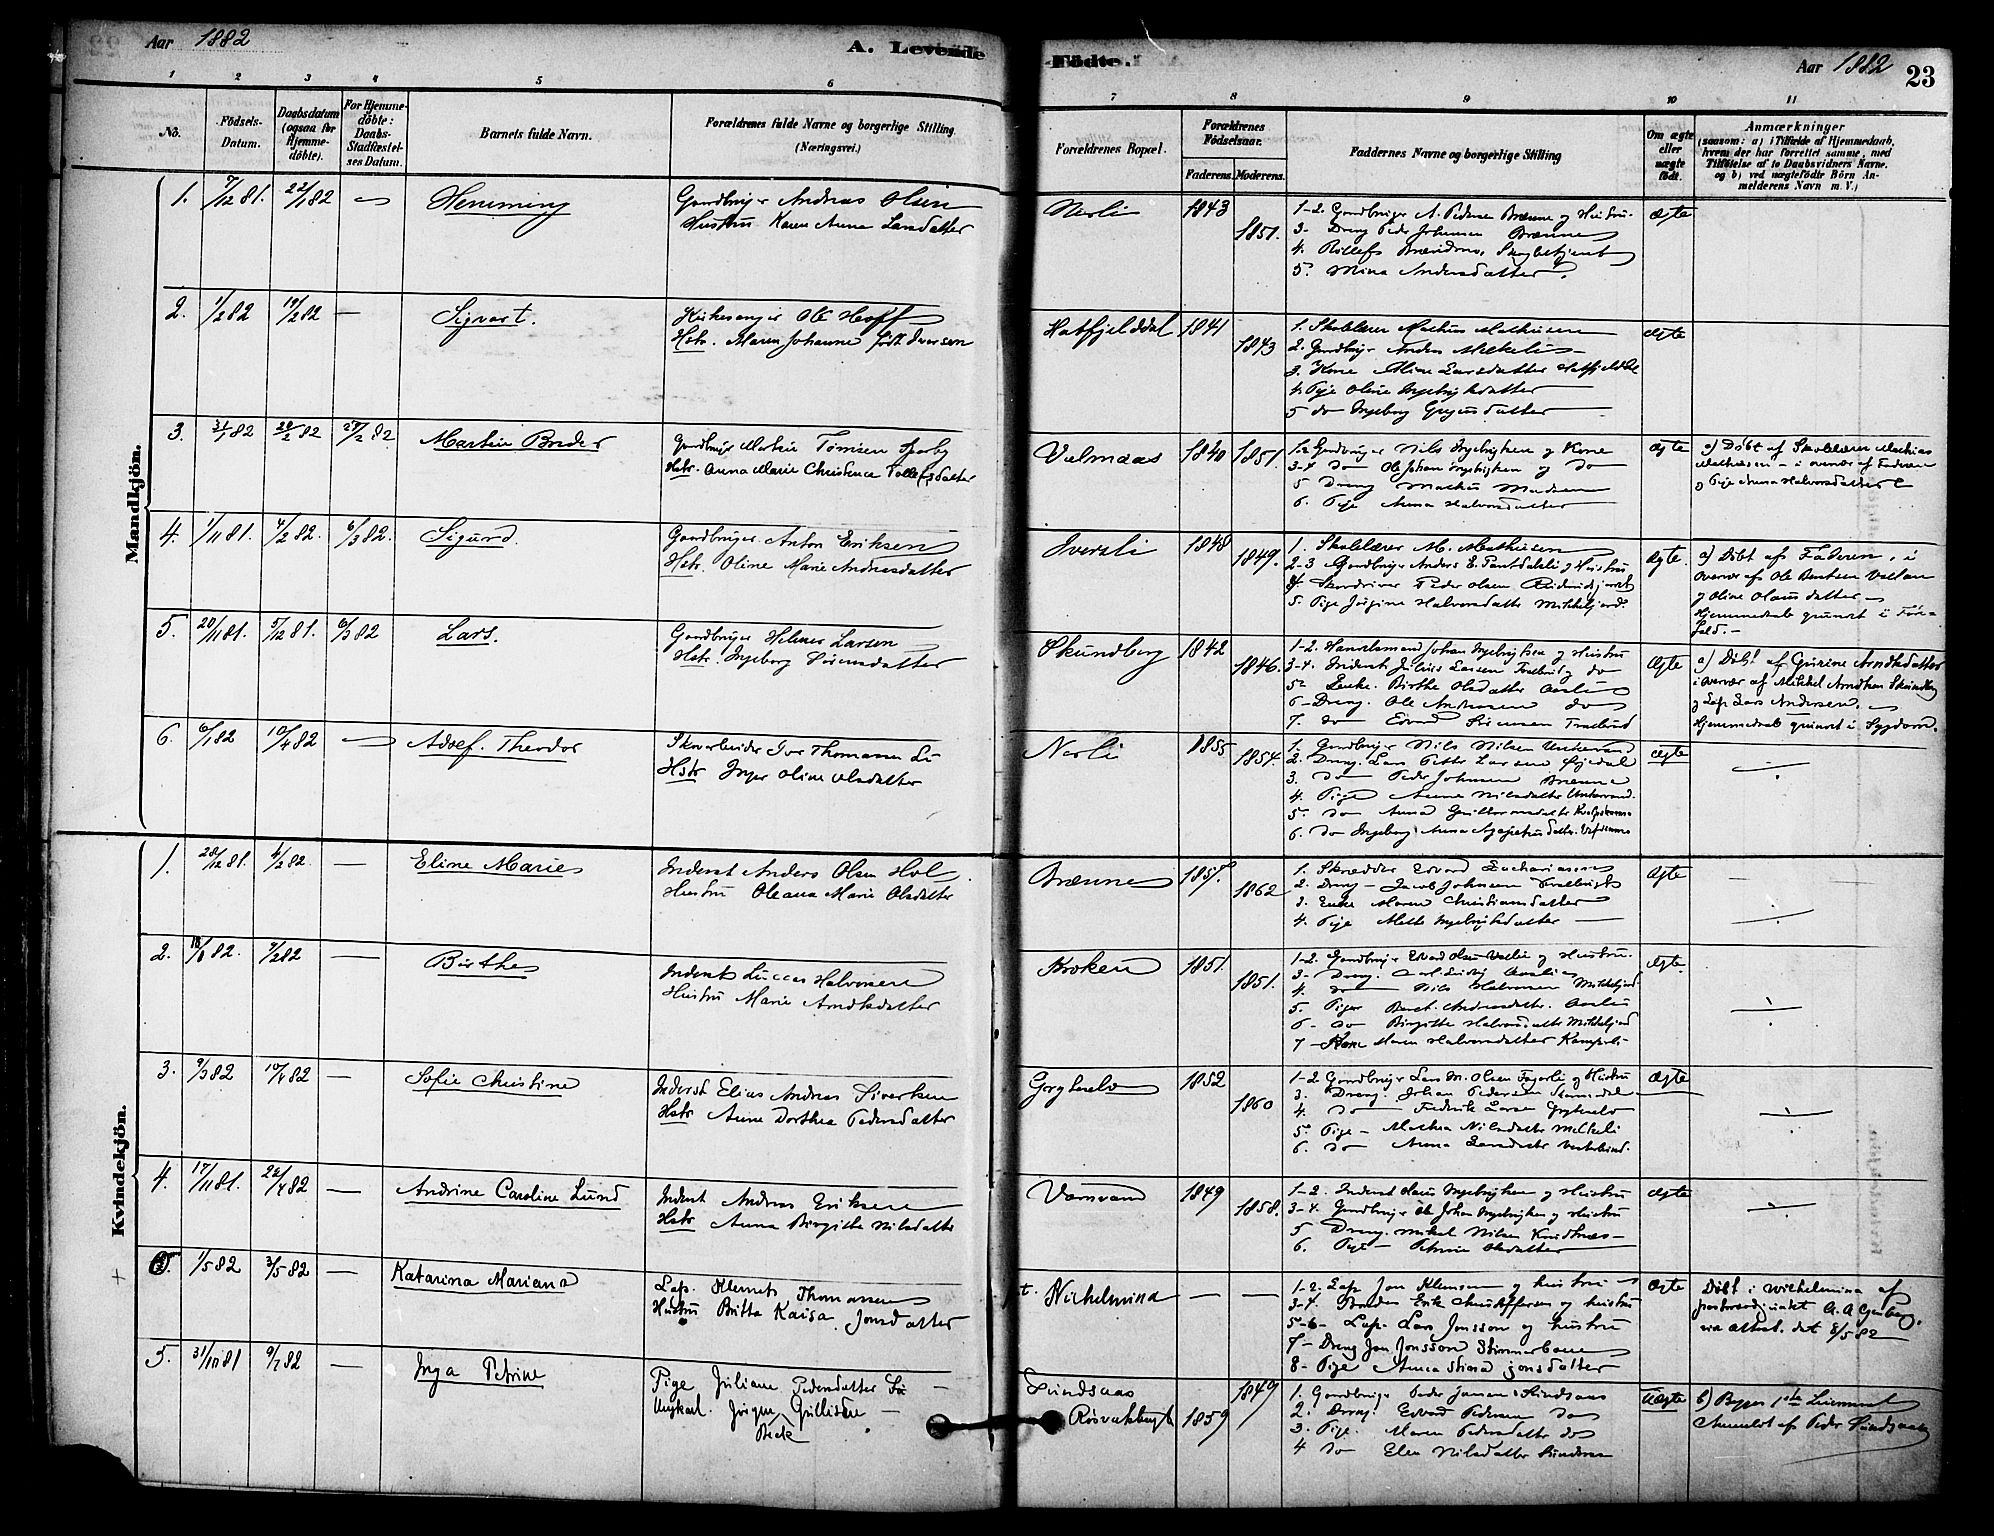 Aar 1882
A. Levende
Födte.
Aar 1882
23
1 2 3 4 5 6 7 8 9 10 11
No.
Födsels-
Datum.
Daabsdatum
(ogsaa for
Hjemme-
döbte).
For Hjemme-
döbte:
Daabs-
Stadfæstel-
ses Datum.
Barnets fulde Navn.
Forældrenes fulde Navne og borgerlige Stilling.
(Næringsvei.)
Forældrenes Bopæl.
Forældrenes
Födselsaar.
Faderens. Moderens.
Faddernes Navne og borgerlige Stilling
Om ægte
eller
uægte
født.
Anmærkninger
(saasom: a) i Tilfælde af Hjemmedaab,
hvem der har forrettet samme, med
Tilföielse af to Daabsvidners Navne.
og b) ved uægtefödte Börn An-
melderens Navn m. V.)
Mandkjön.
1. 7/12 81. 22/1 82 Hemming
Gaardbruger Andreas Olsen
Hustru Karen Anna Larsdatter
Nerli 1843 1851.
1-2. Gaardbruger A. Pedersen Brænne og Hustru.
3- Dreng Peder Johnsen Brænne
5. Mina Andersdatter
Ægte
2. 1/2 82 19/2 82 — Sigvart.
Kirkesanger Ole Hoff
Hstr. Maren Johanne født Iversen
Hatfjelddal 1841 1843
1. Skolelærer Mathias Mathisen
2. Gaardbruger Anders Mikkeli
3. Kone Aline Larsdatter Hatfjelddal
4. Pige Oline Ingebrigtsdatter
5 do Ingeborg
Ægte
3. 31/1 82 20/2 82 27/2 82 Martin Breder
Gaardbruger Martin Tomisen Sparby
Hstr. Anna Marie Christence Tollefsdatter
Valmaas 1840 1851.
1-2 Gaardbruger Nils Ingebrigtsen og Kone
3-4 do Ole Johan Ingebrigtsen og do
5 Dreng Mathis Madsen
6. Pige Anna Halvorsdatter
Ægte
a) Døbt af Skolelærer Mathias
Mathisen — i overvær af Faderen
og Pige Anna Halvorsdatter
4. 1/11 81. 4/2 82. 6/3 82. Sigurd.
Gaardbruger Anton Eriksen
Hstr. Oline Marie Andreasdatter
Iversli 1848 1849.
1. Skolelærer M. Mathisen
2-3 Gaardbruger Anders E. Pantdalsli og Hustru
4- Peder Olsen
5. Pige Jörgine Halvorsdatter Mikkeljord.
Ægte.
a) Døbt af Faderen, i
overvær af Ole Bentsen Vallan
og Oline Olausdatter
Hjemmedaab grundet i Føre-
fald. —
5. 20/11 81. 5/12 81. 6/3 82 Lars.
Gaardbruger Helmer Larsen
Hstr. Ingeborg Sörensdatter
Skundberg 1842 1846.
1-2. Handelsmand Johan Ingebrigtsen og Hustru
3-4. Inderst Julius Larsen og do
5- Enke. Birthe Olsdatter
6- Dreng. Ole Andreasen do
7. do Edvard Sörensen
Ægte
a) Døbt af Gurine Arndtsdatter
i overvær af Mikkel Arndtsen Skundberg
og Lap Lars Andersen.
Hjemmedaab grundet i Sygdom.
6. 6/1 82 10/4 82 Adolf Theodor
Skoarbeider Ivar Thomassen Li
Hstr Inger Oline Olsdatter
Nerli 1855 1854.
1. Gaardbruger Nils Nilsen
2. Dreng. Lars Petter Larsen
3. do Peder Johnsen Brænne
4. Pige Anne Nilsdatter Undervand.
5. do Anna
6. do Ingeborg Anna
Ægte
Kvindekjön.
1. 28/12 81. 4/2 82. — Eline Marie
Inderst Anders Olsen Hol
Hustru Oleana Marie Olsdatter
Brænne 1857. 1862
1. Skrædder Edvard Zachariassen
2. Dreng — Jacob Johnsen
3. Enke Maren Christiansdatter
4. Pige Mette Ingebrigtsdatter
Ægte
2. 18/1 82. 9/2 82 — Birthe
Inderst Luccas Halvorsen
Hustru Marie Arndtsdatter
Kroken 1851. 1851.
1-2. Gaardbruger Edvard Olsen og Hustru.
3- Dreng. Carl
4. do Nils Halvorsen Mikkeljord
5. Piger Beret Andreasdatter.
6- do Birgitte Halvorsdatter Mikkeljord
7- Kone Maren Halvorsdatter
Ægte.
3. 9/3 82 10/4 82 — Sofie Christine
Inderst Elias Andreas Sivertsen
Hstr Anne Dorthea Pedersdatter
Grytselv 1852 1860
1-2 Gaardbruger Lars M. Olsen Fagerli og Hustru
3. Dreng. Johan Pedersen
4. do Fredrik Larsen Grytselv
5. Pige — Marthea Nilsdatter Mikkeli
6. do Anna Larsdatter
Ægte
4. 17/11 81. 22/4 82 — Andrine Caroline Lund
Inderst Andreas Eriksen
Hstr Anna Birgitte Nilsdatter
1849 1858.
1-2. Inderst Olaus Ingebrigtsen og Hustru
3-4. Gaardbruger Ole Johan Ingebrigtsen og Hustru
5 Dreng. Mikal Nilsen
6. Pige — Petrine Olsdatter
Ægte
1/5 82 3/5 82 — Katarina Mariana
Lap. Klemet Thomassen
Hustru Britta Kaisa Jonsdatter
t. Wilhelmina — —
1-2- Lap Jon Klemsen og hustru
3-4. Bonden Erik Christoffersen og hustru
5-6- Lap- Lars Jonsson og hustru
7- Dreng Jon Jonsson
8- Pige Anna Stina Jonsdatter
Ægte
Døbt i Wilhelmina af
pastorsadjunktet A. A.
via attest. dat 8/5 82
5. 31/10 81 9/7 82 — Inga Petrine
Pige Juliane Pedersdatter
Ungkarl. Jörgen
Beck
Sundsaas
Røsvatsbugt 1859 1849
1. Gaardbruger Peder Jansen Sundsaas
2. Dreng. Edvard Pedersen do
3. Pige. Maren Pedersdatter do
4 do Elen Nilsdatter Sundsaas
Uægte
b) Byens 1ste Leiermaal
Anmeldt af Peder Sundsaas